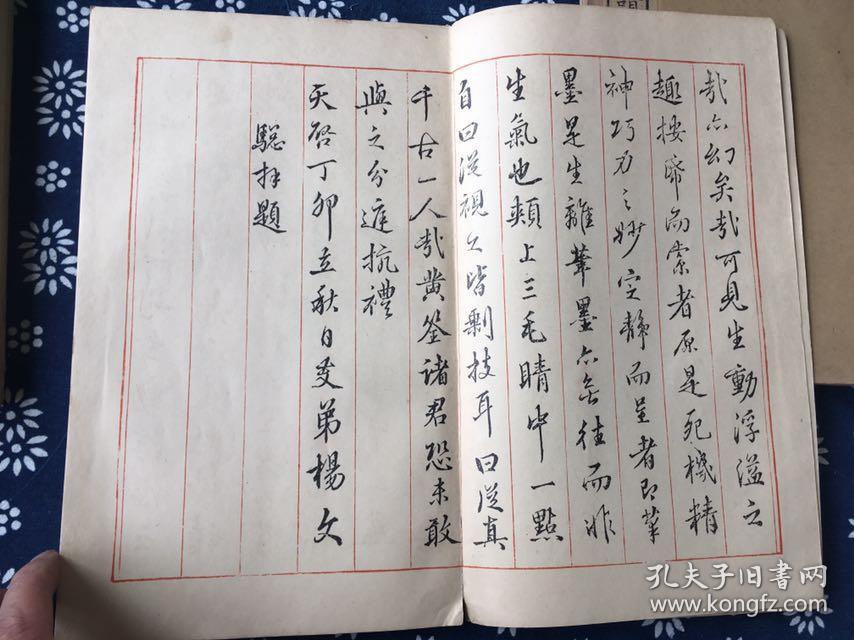 哉亦幻矣哉可見生動浮溢之
趣按而索者原是死機精
神巧力之妙定靜而呈者即筆
墨是生離筆墨亦無往而非
生氣也頰上三毛睛中一點
自曰從視之皆剩技耳曰從真
千古一人哉黃筌諸君恐未敢
與之分庭抗禮
天啓丁卯立秋日友弟楊文
驄拜題
孔夫子旧书网
www.kongfz.com